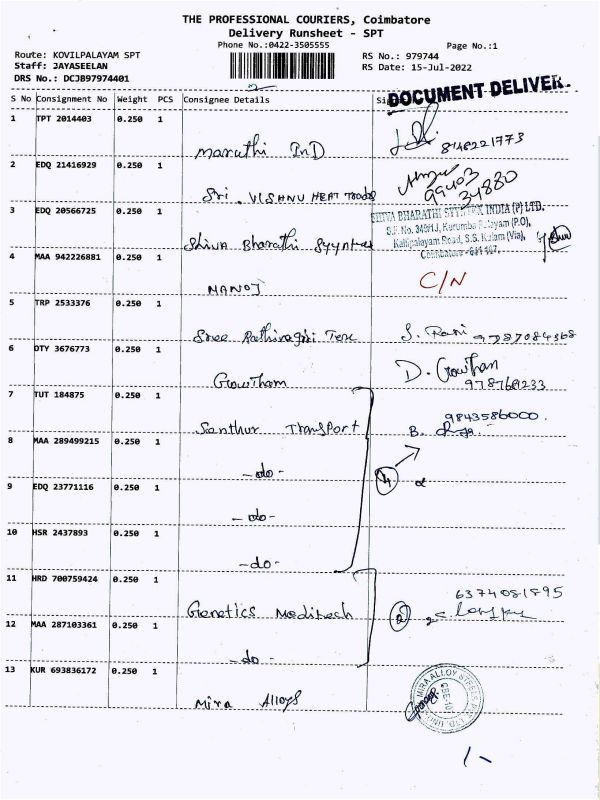 THE PROFESSIONAL COURIERS, Coimbatore
Delivery Runsheet - SPT
Phone No.:0422-3505555
Page No.:1
Route: KOVILPALAYAM SPT
RS No.: 979744
Staff: JAYASEELAN
RS Date: 15-Jul-2022
DRS No.: DCJB97974401
DOCUMENT DELIVER.
S No Consignment No Weight PCS Consignee Details
1 TPT 2014403 0.250 1
Maruthi InD 8148221773
2 EDQ 21416929 0.250 1
Sri. VISHNU HEAT 99403
34880
3 EDQ 20566725 0.250 1
SHIVA BHARATHI INDIA (P) LTD.
Shiva Bharathi
Kallipalayam Road, S.S. Kulam (Via),
4 MAA 942226881 0.250 1
MANOJ C/N
5 TRP 2533376 0.250 1
Sree S. Rani 9787084368
6 OTY 3676773 0.250 1
Gowtham D. Gowthan
9787601233
7 TUT 184875 0.250 1
Santhur Transport 9843586000.
B.
8 MAA 289499215 0.250 1
-do- 4
9 EDQ 23771116 0.250 1
-do-
10 HSR 2437893 0.250 1
-do-
11 HRD 700759424 0.250 1
Genetics Meditech 2 6374081895
12 MAA 287103361 0.250 1
-do-
13 KUR 693836172 0.250 1
Mira Alloys MIRA ALLOY STEELS